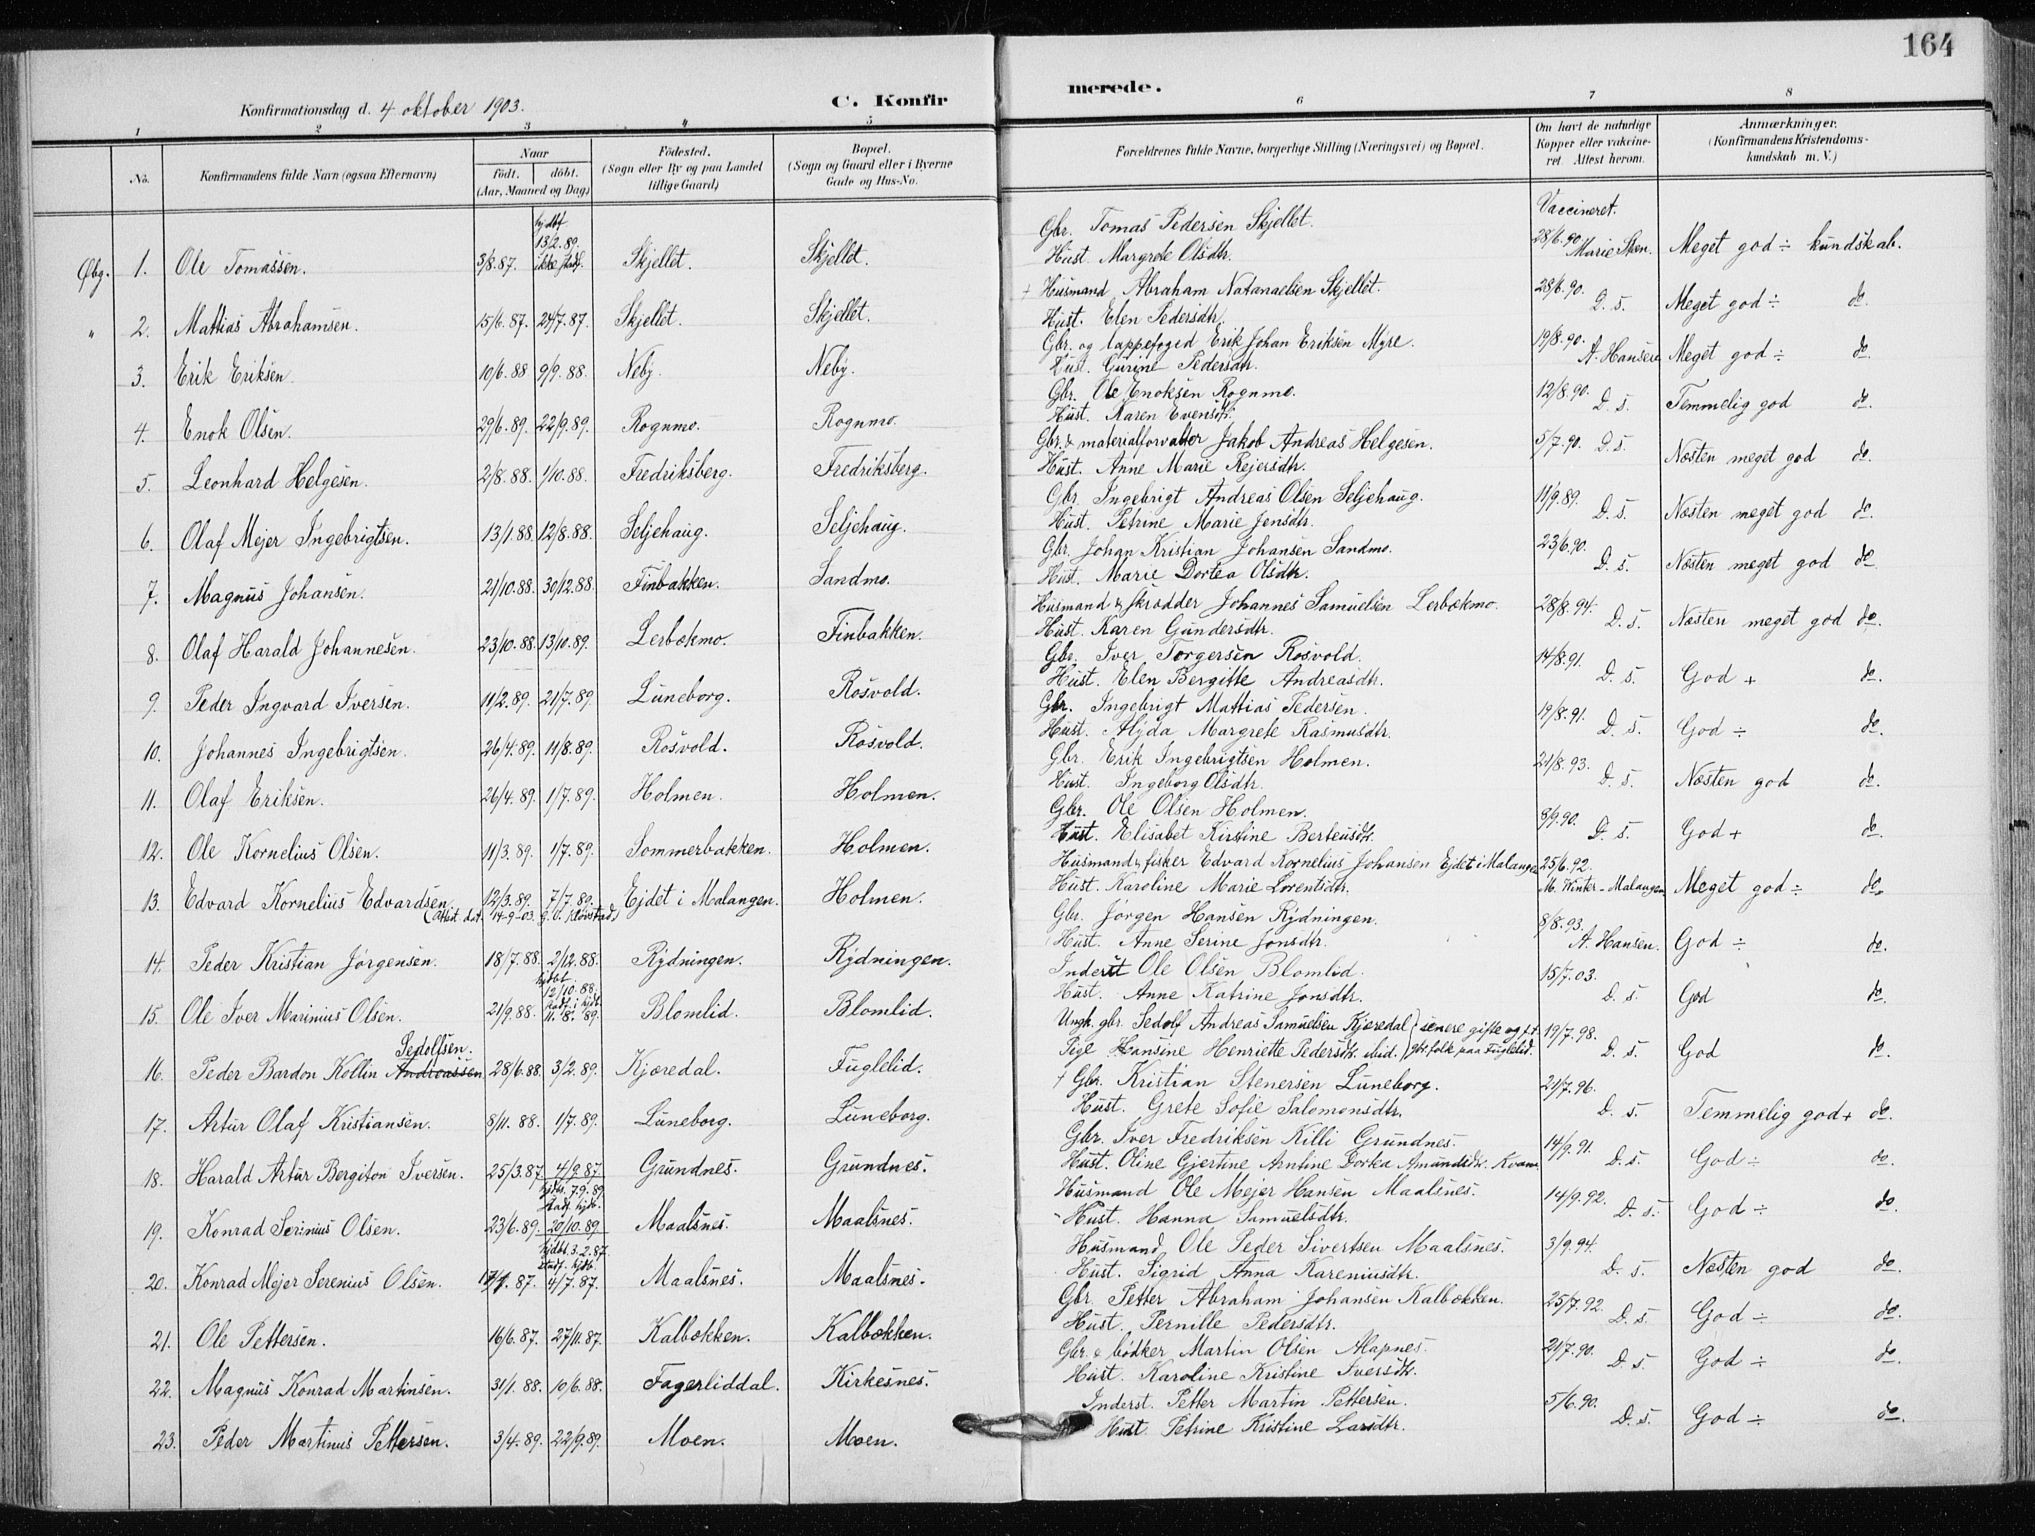 164
Konfirmationsdag d. 4 oktober 1903. C. Konfirmerede.
1 2 3 4 5 6 7 8
No. Konfirmandens fulde Navn (ogsaa Efternavn) Naar født. døbt. (Aar, Maaned og Dag) Fødested. (Sogn eller By og paa Landet tillige Gaard) Bopæl. (Sogn og Gaard eller i Byerne Gade og Hus-No. Forældrenes fulde Navne, borgerlige Stilling (Næringsvei) og Bopæl. Om havt de naturlige Kopper eller vakcineret. Attest herom. Anmærkninger. (Konfirmandens Kristendomskundskab m. V.)
Øbg. 1. Ole Tomassen. 3/8.87. hjdbt 13/2.89. ikke stadf. Skjellet. Skjellet. Gbr. Tomas Pedersen Skjellet. Vaccineret. 28/6.90 Marie Sten. Meget god ÷ kundskab.
Hust. Margrete Olsdtr.
" 2. Mattias Abrahamsen. 15/6.87. 24/7.87. Skjellet. Skjellet. + Husmand Abraham Natanaelsen Skjellet. 28/6.90. D. s. Meget god ÷ do.
Hust. Elen Pedersdtr.
3. Erik Eriksen. 10/6.88 9/9.88. Neby. Neby. Gbr. og lappefoged Erik Johan Eriksen Myre. 19/8.90. A. Hansen Meget god ÷ do.
Hust. Gurine Pedersdtr.
4. Enok Olsen. 29/6.89. 22/9.89. Rognmo. Rognmo. Gbr. Ole Enoksen Rognmo. 12/8.90. D. s. Temmelig god do.
Hust. Karen Evensdtr.
5. Leonhard Helgesen. 2/8.88. 1/10.88. Fredriksberg. Fredriksberg. Gbr. & materialforvalter Jakob Andreas Helgesen. 5/7.90. D. s. Næsten meget god do.
Hust. Anne Marie Rejersdtr.
6. Olaf Mejer Ingebrigtsen. 13/1.88. 12/8.88. Seljehaug. Seljehaug. Gbr. Ingebrigt Andreas Olsen Seljehaug. 11/9.89. D. s. Næsten meget god do.
Hust. Petrine Marie Jensdtr.
7. Magnus Johansen. 21/10.88. 30/12.88. Finbakken. Sandmo. Gbr. Johan Kristian Johansen Sandmo. 23/6.90. D. s. Næsten meget god do
Hust. Marie Dortea Olsdtr.
8. Olaf Harald Johannesen. 23/10.88. 13/10.89. Lerbækmo. Finbakken. Husmand & skrædder Johannes Samuelsen Lerbækmo. 28/8.94. D. s. Næsten meget god do.
Hust. Karen Gundersdtr.
9. Peder Ingvard Iversen. 11/2.89. 21/7.89. Luneborg. Rosvold. Gbr. Iver Torgersen Rosvold. 14/8.91. D. s. God + do.
Hust. Elen Bergitte Andreasdtr.
10. Johannes Ingebrigtsen. 26/4.89. 11/8.89. Rosvold. Rosvold. Gbr. Ingebrigt Mattias Pedersen. 19/8.91. D. s. God ÷ do.
Hust. Alyda Margrete Rasmusdtr.
11. Olaf Eriksen. 26/4.89. 1/7.89. Holmen. Holmen. Gbr. Erik Ingebrigtsen Holmen. 21/8.93. D. s. Næsten god do.
Hust. Ingeborg Olsdtr.
12. Ole Kornelius Olsen. 11/3.89. 1/7.89. Sommerbakken. Holmen. Gbr. Ole Olsen Holmen. 8/9.90. D. s. God + do.
Hust. Elisabet Kirstine Berteusdtr.
13. Edvard Kornelius Edvardsen. 12/3.89. 7/7.89. Ejdet i Malangen. Holmen. Husmand & fisker Edvard Kornelius Johansen Ejdet i Malangen 25/6.92. M. Winter - Malangen Meget god ÷ do.
(Attest dat. 14-9-03. Hust. Karoline Marie Lorentsdtr.
14. Peder Kristian Jørgensen. 18/7.88. 2/12.88. Rydningen. Rydningen. Gbr. Jørgen Hansen Rydningen. 8/8.93. A. Hansen. God ÷ do.
Hust. Anne Serine Jonsdtr.
15. Ole Iver Marinius Olsen. 21/9.88. hjdbt 12/10.88. stadf. i hjdb. 11.8.89. Blomlid. Blomlid. Inderst Ole Olsen Blomlid. 15/7.03. D. s. God do.
Hust. Anne Katrine Jonsdtr.
16. Peder Bardon Kollin Andreassen Sedolfsen. 28/6.88. 3/2.89. Kjæredal. Fuglelid. Ungk. gbr. Sedolf Andreas Samuelsen Kjæredal } senere gifte og f.t. 19/7.98. D. s. God do.
Pige Hansine Henriette Pedersdtr. ibid. } gbr.folk paa Fuglelid.
17. Artur Olaf Kristiansen. 8/11.88. 1/7.89. Luneborg. Luneborg. + Gbr. Kristian Stenersen Luneborg. 21/7.96. D. s. Temmelig god + do.
Hust. Grete Sofie Salomonsdtr.
18. Harald Artur Bergiton Iversen. 25/3.87. 4/9.87. Grundnes. Grundnes. Gbr. Iver Fredriksen Killi Grundnes. 14/9.91. D. s. God ÷ do.
Hust. Oline Gjertine Arntine Dortea Amundsdtr. Kvam
19. Konrad Serinius Olsen. 23/6.89. hjdbt. 7.9.89 stadf. hjdb. 20/10.89. Maalsnes. Maalsnes. Husmand Ole Mejer Hansen Maalsnes. 14/9.92. D. s. God ÷ do.
Hust. Hanna Samuelsdtr.
20. Konrad Mejer Serenius Olsen. 17/1.87. hjdbt. 3.2.87. stadf. hjdb. 4/7.87. Maalsnes. Maalsnes. Husmand Ole Peder Sivertsen Maalsnes. 3/9.94. D. s. Næsten god do.
Hust. Sigrid Anna Kareniusdtr.
21. Ole Pettersen. 16/6.87. 27/11.87. Kalbækken. Kalbækken. Gbr. Petter Abraham Johansen Kalbækken. 25/7.92. D. s. God ÷ do.
Hust. Pernille Pedersdtr.
22. Magnus Konrad Martinsen. 31/1.88. 10/6.88. Fagerliddal. Kirkesnes. Gbr. & bødker Martin Olsen Alapnes. 21/7.90. D. s. God ÷ do.
Hust. Karoline Kristine Iversdtr.
23. Peder Martinus Pettersen. 3/4.89. 22/9.89. Moen. Moen. Inderst. Petter Martin Pettersen. 5/6.90. D. s. God ÷ do.
Hust. Petrine Kristine Larsdtr.